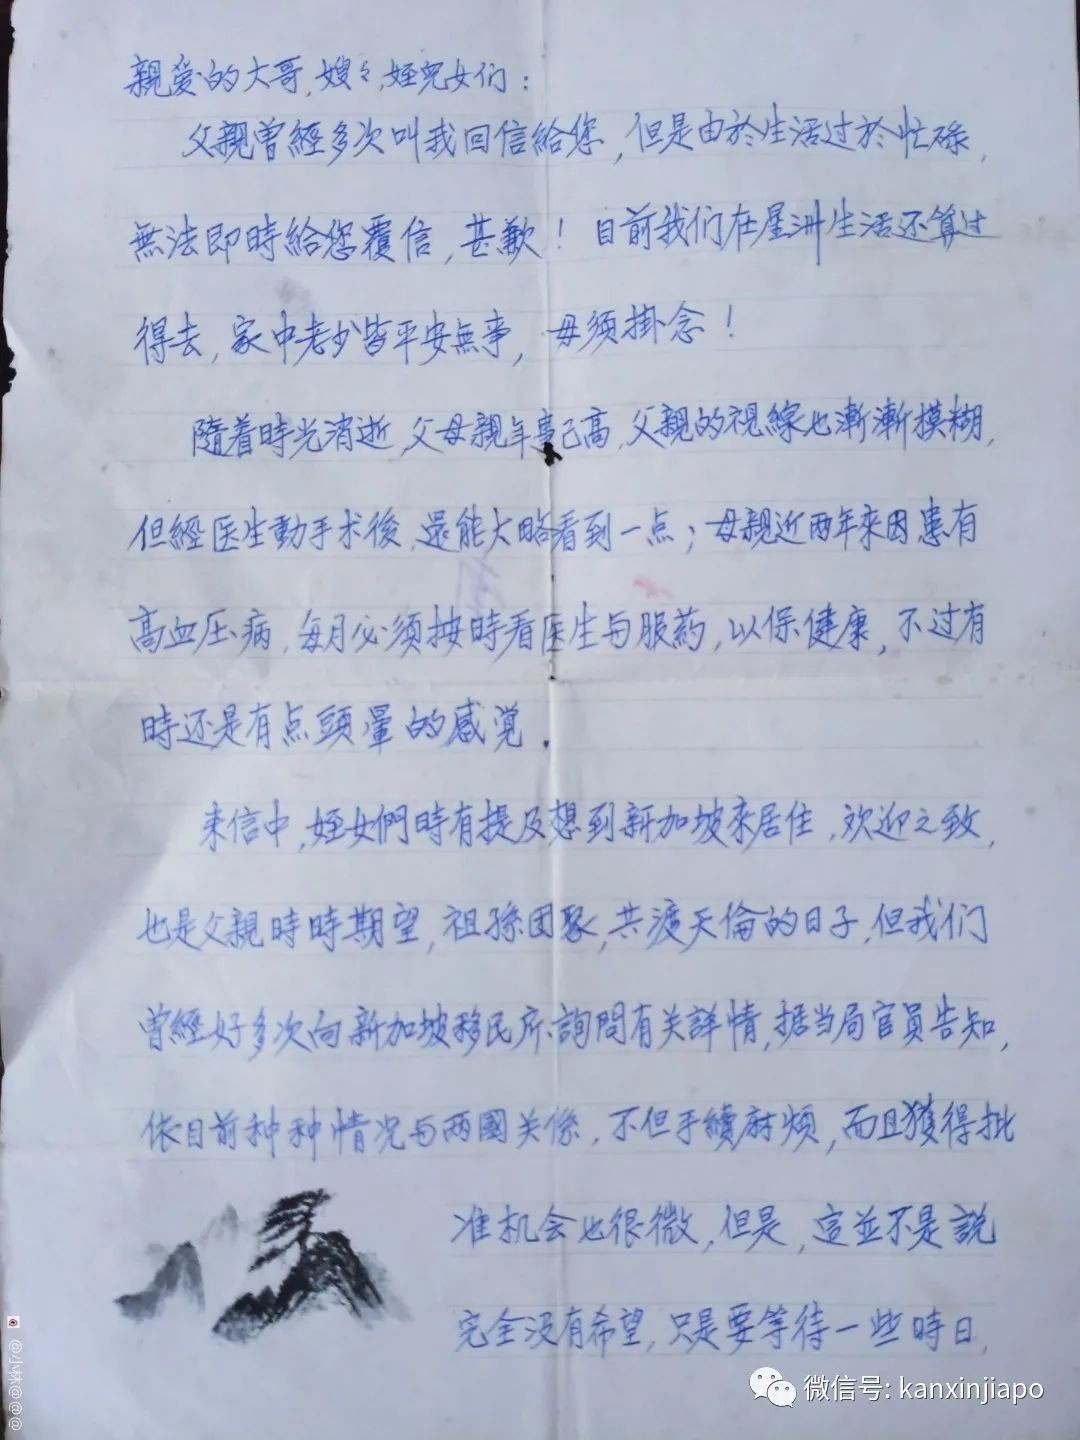 親爱的大哥,嫂々,姪兒女们:
父親曾經多次叫我回信給您,但是由於生活过於忙碌,
無法即時給您覆信,甚歉!目前我们在星洲生活还算过
得去,家中老少皆平安無事,毋须掛念!
隨着時光消逝,父母親年事已高,父親的視線也漸漸模糊,
但經医生動手术後,還能大略看到一点;母親近两年來因患有
高血压病,每月必须按時看医生与服药,以保健康,不过有
時还是有点頭暈的感覚.
来信中,姪女們時有提及想到新加坡來居住,欢迎之致,
也是父親時時期望,祖孫团聚,共渡天倫的日子,但我们
曾經好多次向新加坡移民所詢問有关詳情,据当局官員告知,
依目前种种情况与两國关係,不但手續麻煩,而且獲得批
准机会也很微,但是,這並不是説
完全没有希望,只是要等待一些時日,
@小林@@@
微信号: kanxinjiapo